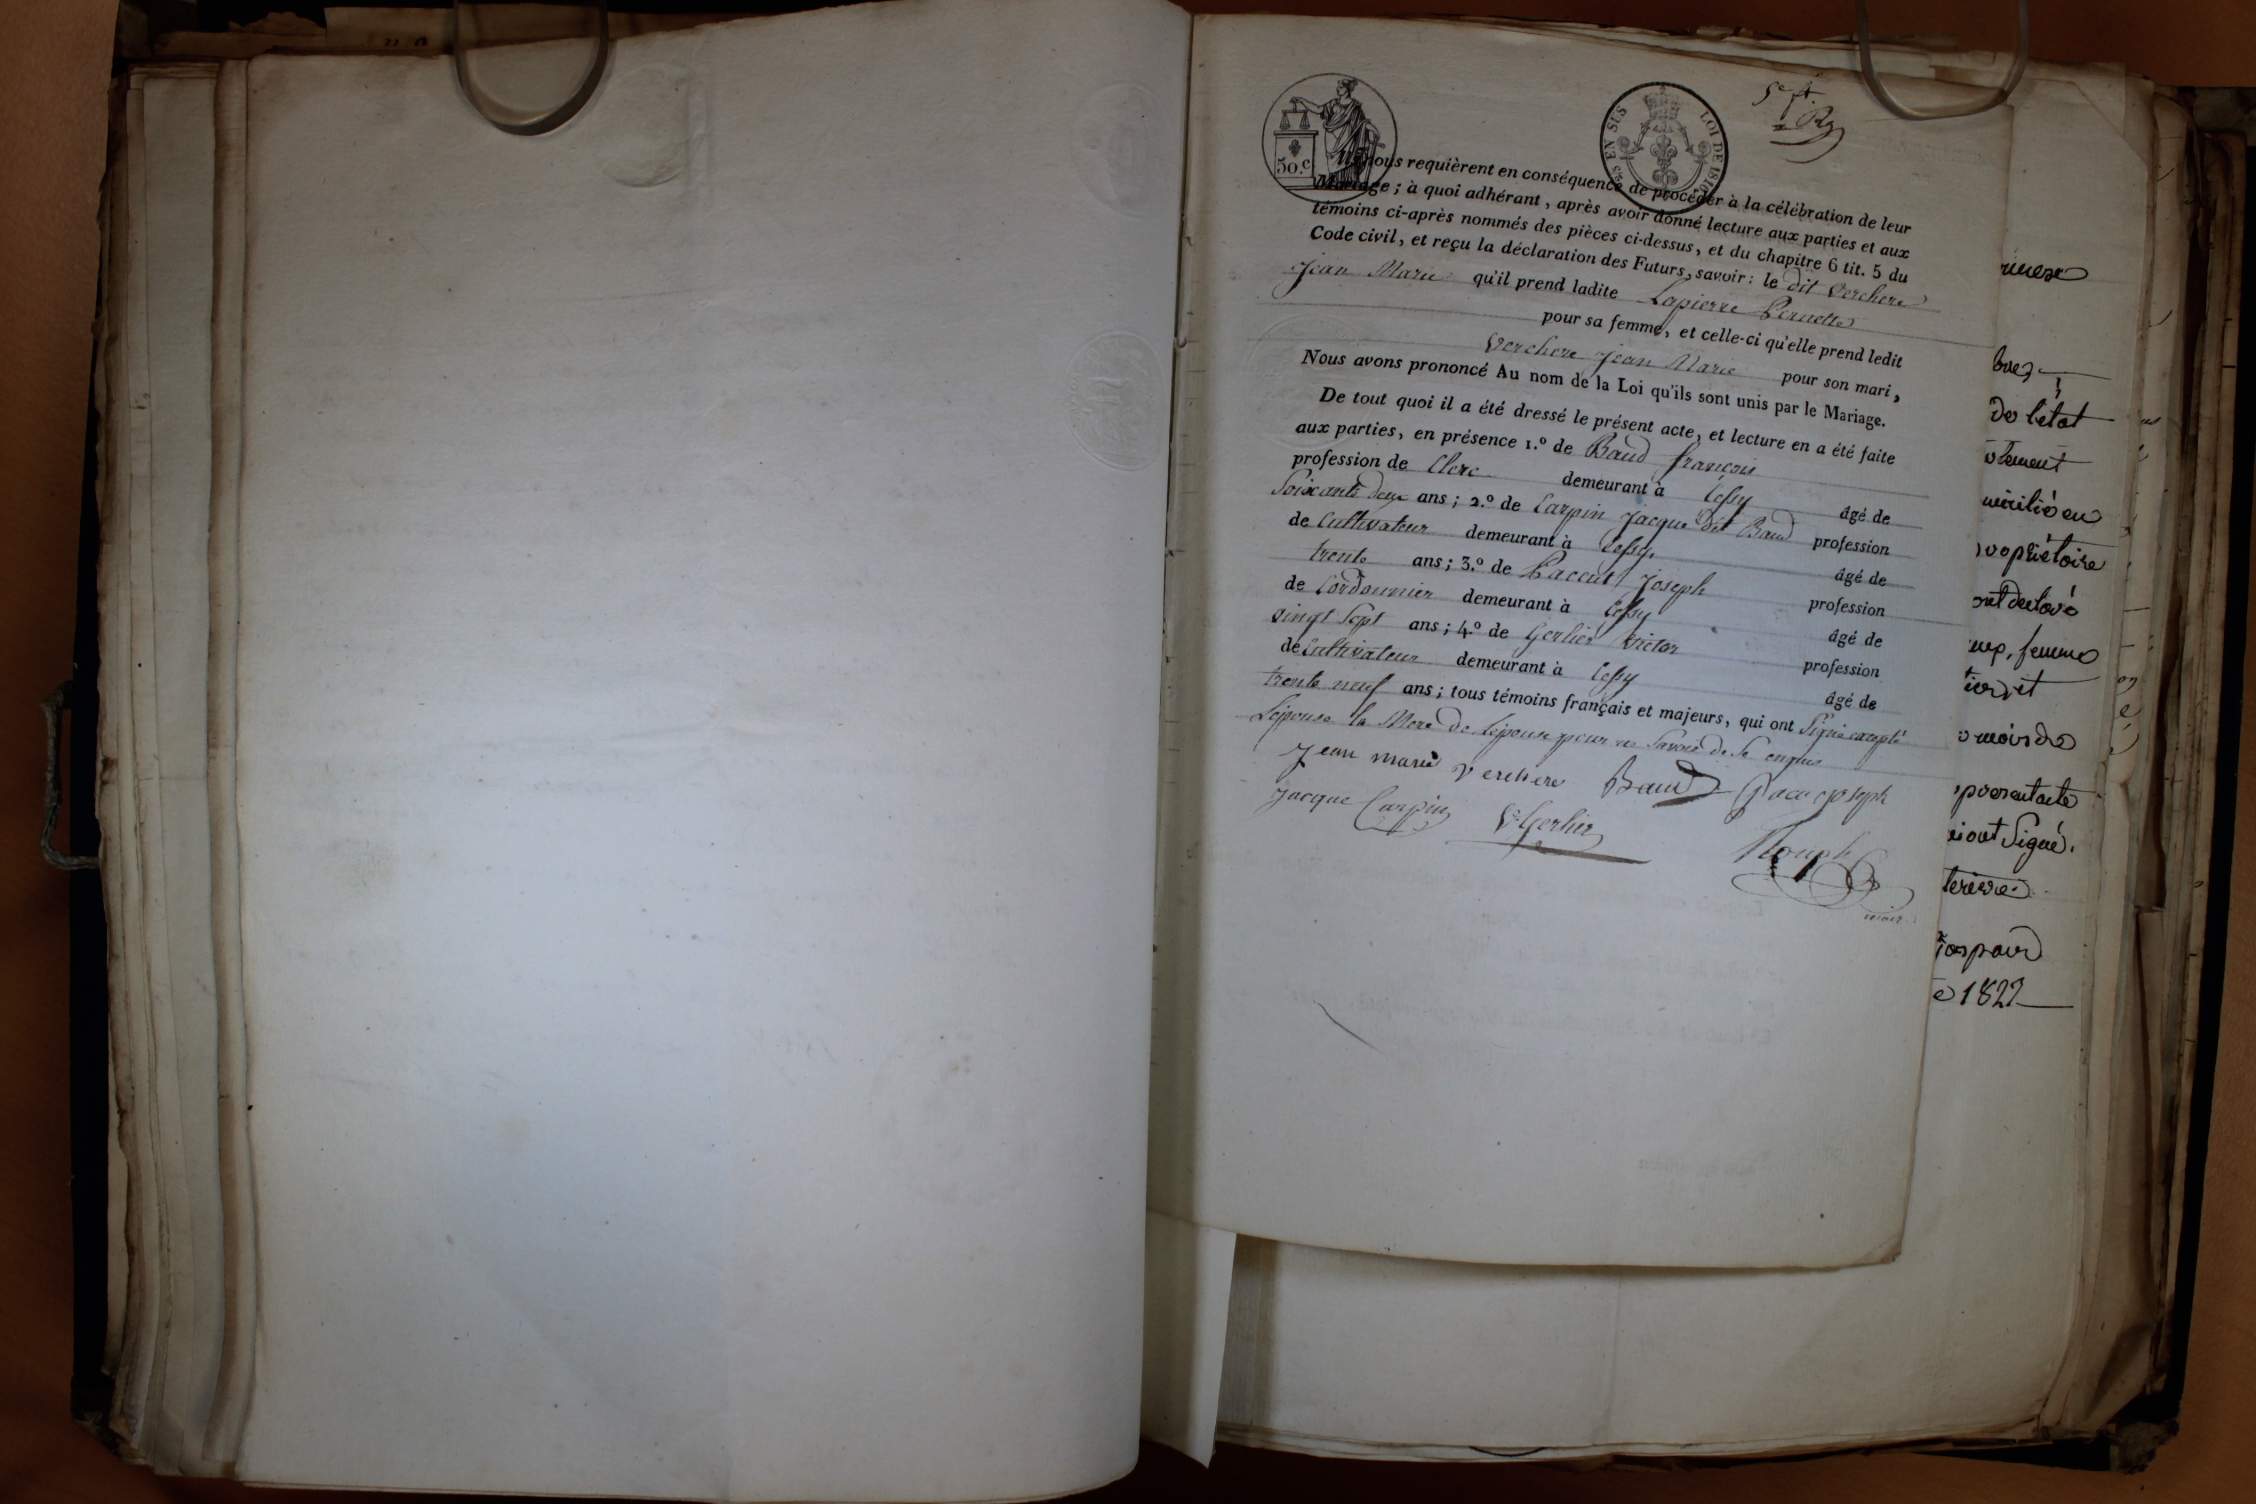 50.c
EN SUS
LOI DE 1816
5e f.t
Ils nous requièrent en conséquence de procéder à la célébration de leur
Mariage; à quoi adhérant, après avoir donné lecture aux parties et aux
témoins ci-après nommés des pièces ci-dessus, et du chapitre 6 tit. 5 du
Code civil, et reçu la déclaration des Futurs, savoir: le dit Verchere
Jean Marie qu'il prend ladite Lapierre Pernette
pour sa femme, et celle-ci qu'elle prend ledit
Verchere Jean Marie pour son mari,
Nous avons prononcé Au nom de la Loi qu'ils sont unis par le Mariage.
De tout quoi il a été dressé le présent acte, et lecture en a été faite
aux parties, en présence 1.º de Baud françois
profession de Clerc demeurant à Cessy âgé de
Soixante deux ans; 2.º de Carpin Jacque dit Baud profession
de Cultivateur demeurant à Cessy. âgé de
trente ans; 3.º de Paccut Joseph profession
de Cordonnier demeurant à Cessy âgé de
vingt Sept ans; 4.º de Gerlier Victor profession
de Cultivateur demeurant à Cessy âgé de
trente neuf ans; tous témoins français et majeurs, qui ont Signé excepté
L'épouse la Mere de L'époux pour ne Savoir de Ce enquis
Jean marie verchere Baud Pacu Joseph
Jacque Carpin V. Gerlier
maire
de l'état
propriétoire
femme
mois de
ont Signé.
1822